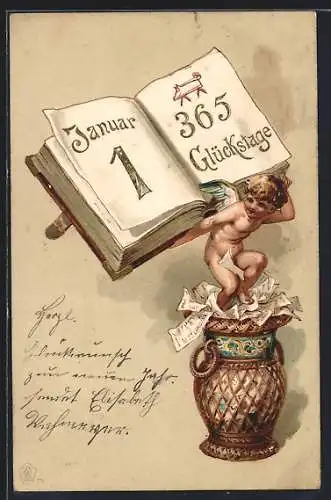 Januar
1
365
Glückstage
Herzl.
Glückwunsch
zum neuen Jahr
sendet Elisabeth